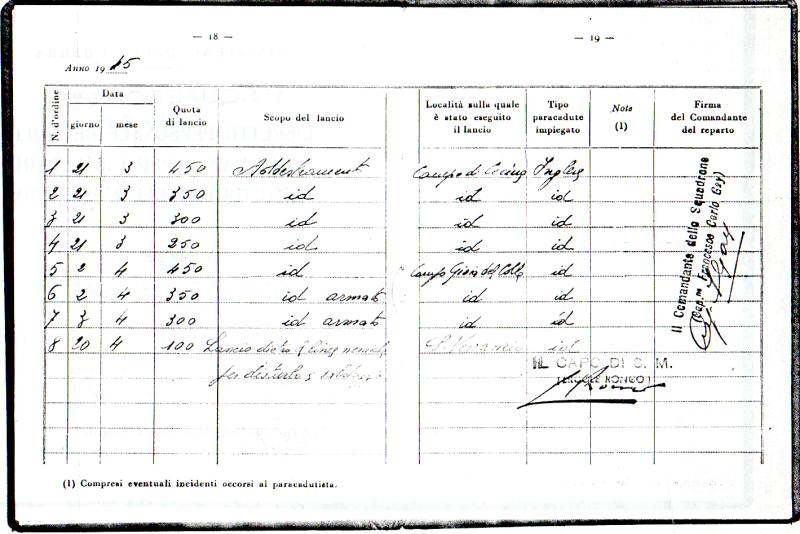 — 18 —
— 19 —
Anno 1945
N. d'ordine Data Quota di lancio Scopo del lancio Località sulla quale è stato eseguito il lancio Tipo paracadute impiegato Note (1) Firma del Comandante del reparto
giorno mese
1 21 3 450 Addestrament Campo di Cecina Inglese
2 21 3 350 id id id
3 21 3 300 id id id
4 21 3 250 id id id
5 2 4 450 id Campo Gioia del Colle id
6 2 4 350 id armato id id
7 3 4 300 id armato id id
8 20 4 100 Lancio dietro linee id
per disturbo e
Il Comandante dello Squadrone
(Cap.no Francesco Carlo Gay)
Gay
IL CAPO DI S. M.
(ERCOLE RONCO)
(1) Compresi eventuali incidenti occorsi al paracadutista.